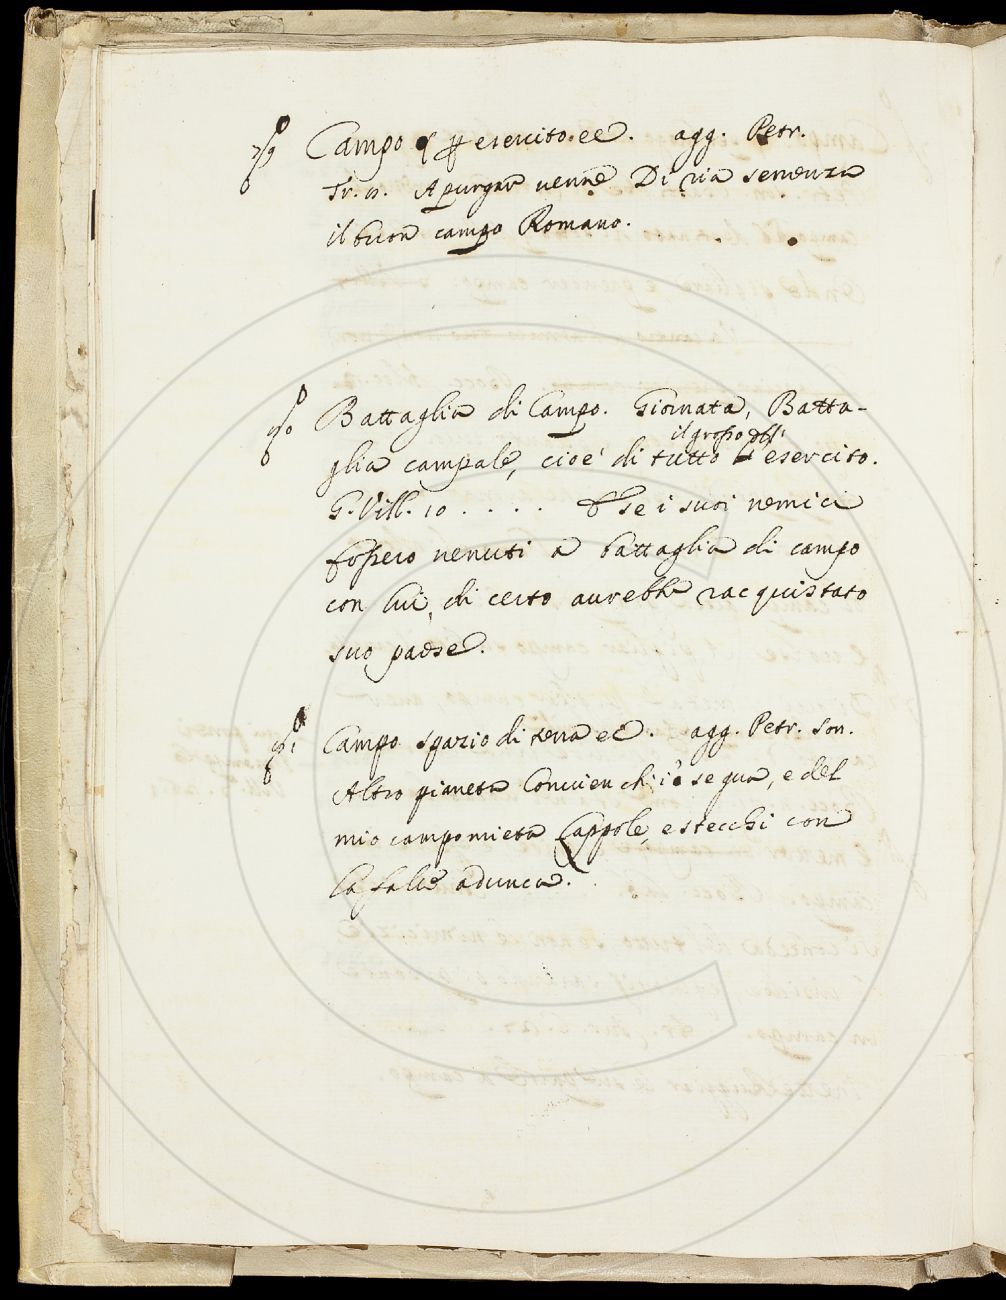 Campo esercito. ec. agg. Petr.
Tr. A purgar venne Di ria semenza
il buon campo Romano.
Battaglia di Campo. Giornata, Batta-
il grosso dell'
glia campale, cioè di tutto esercito.
G. Vill. 10 . . . . se i suoi nemici
fossero venuti a battaglia di campo
con lui, di certo avrebbe racquistato
suo paese.
Campo spazio di terra ec. agg. Petr. Son.
Altro pianeta Convien ch' i' segua, e del
mio campo mieta Lappole, e stecchi con
la falce adunca.